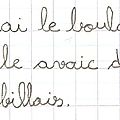 ai le boula
le avaic d
billais.